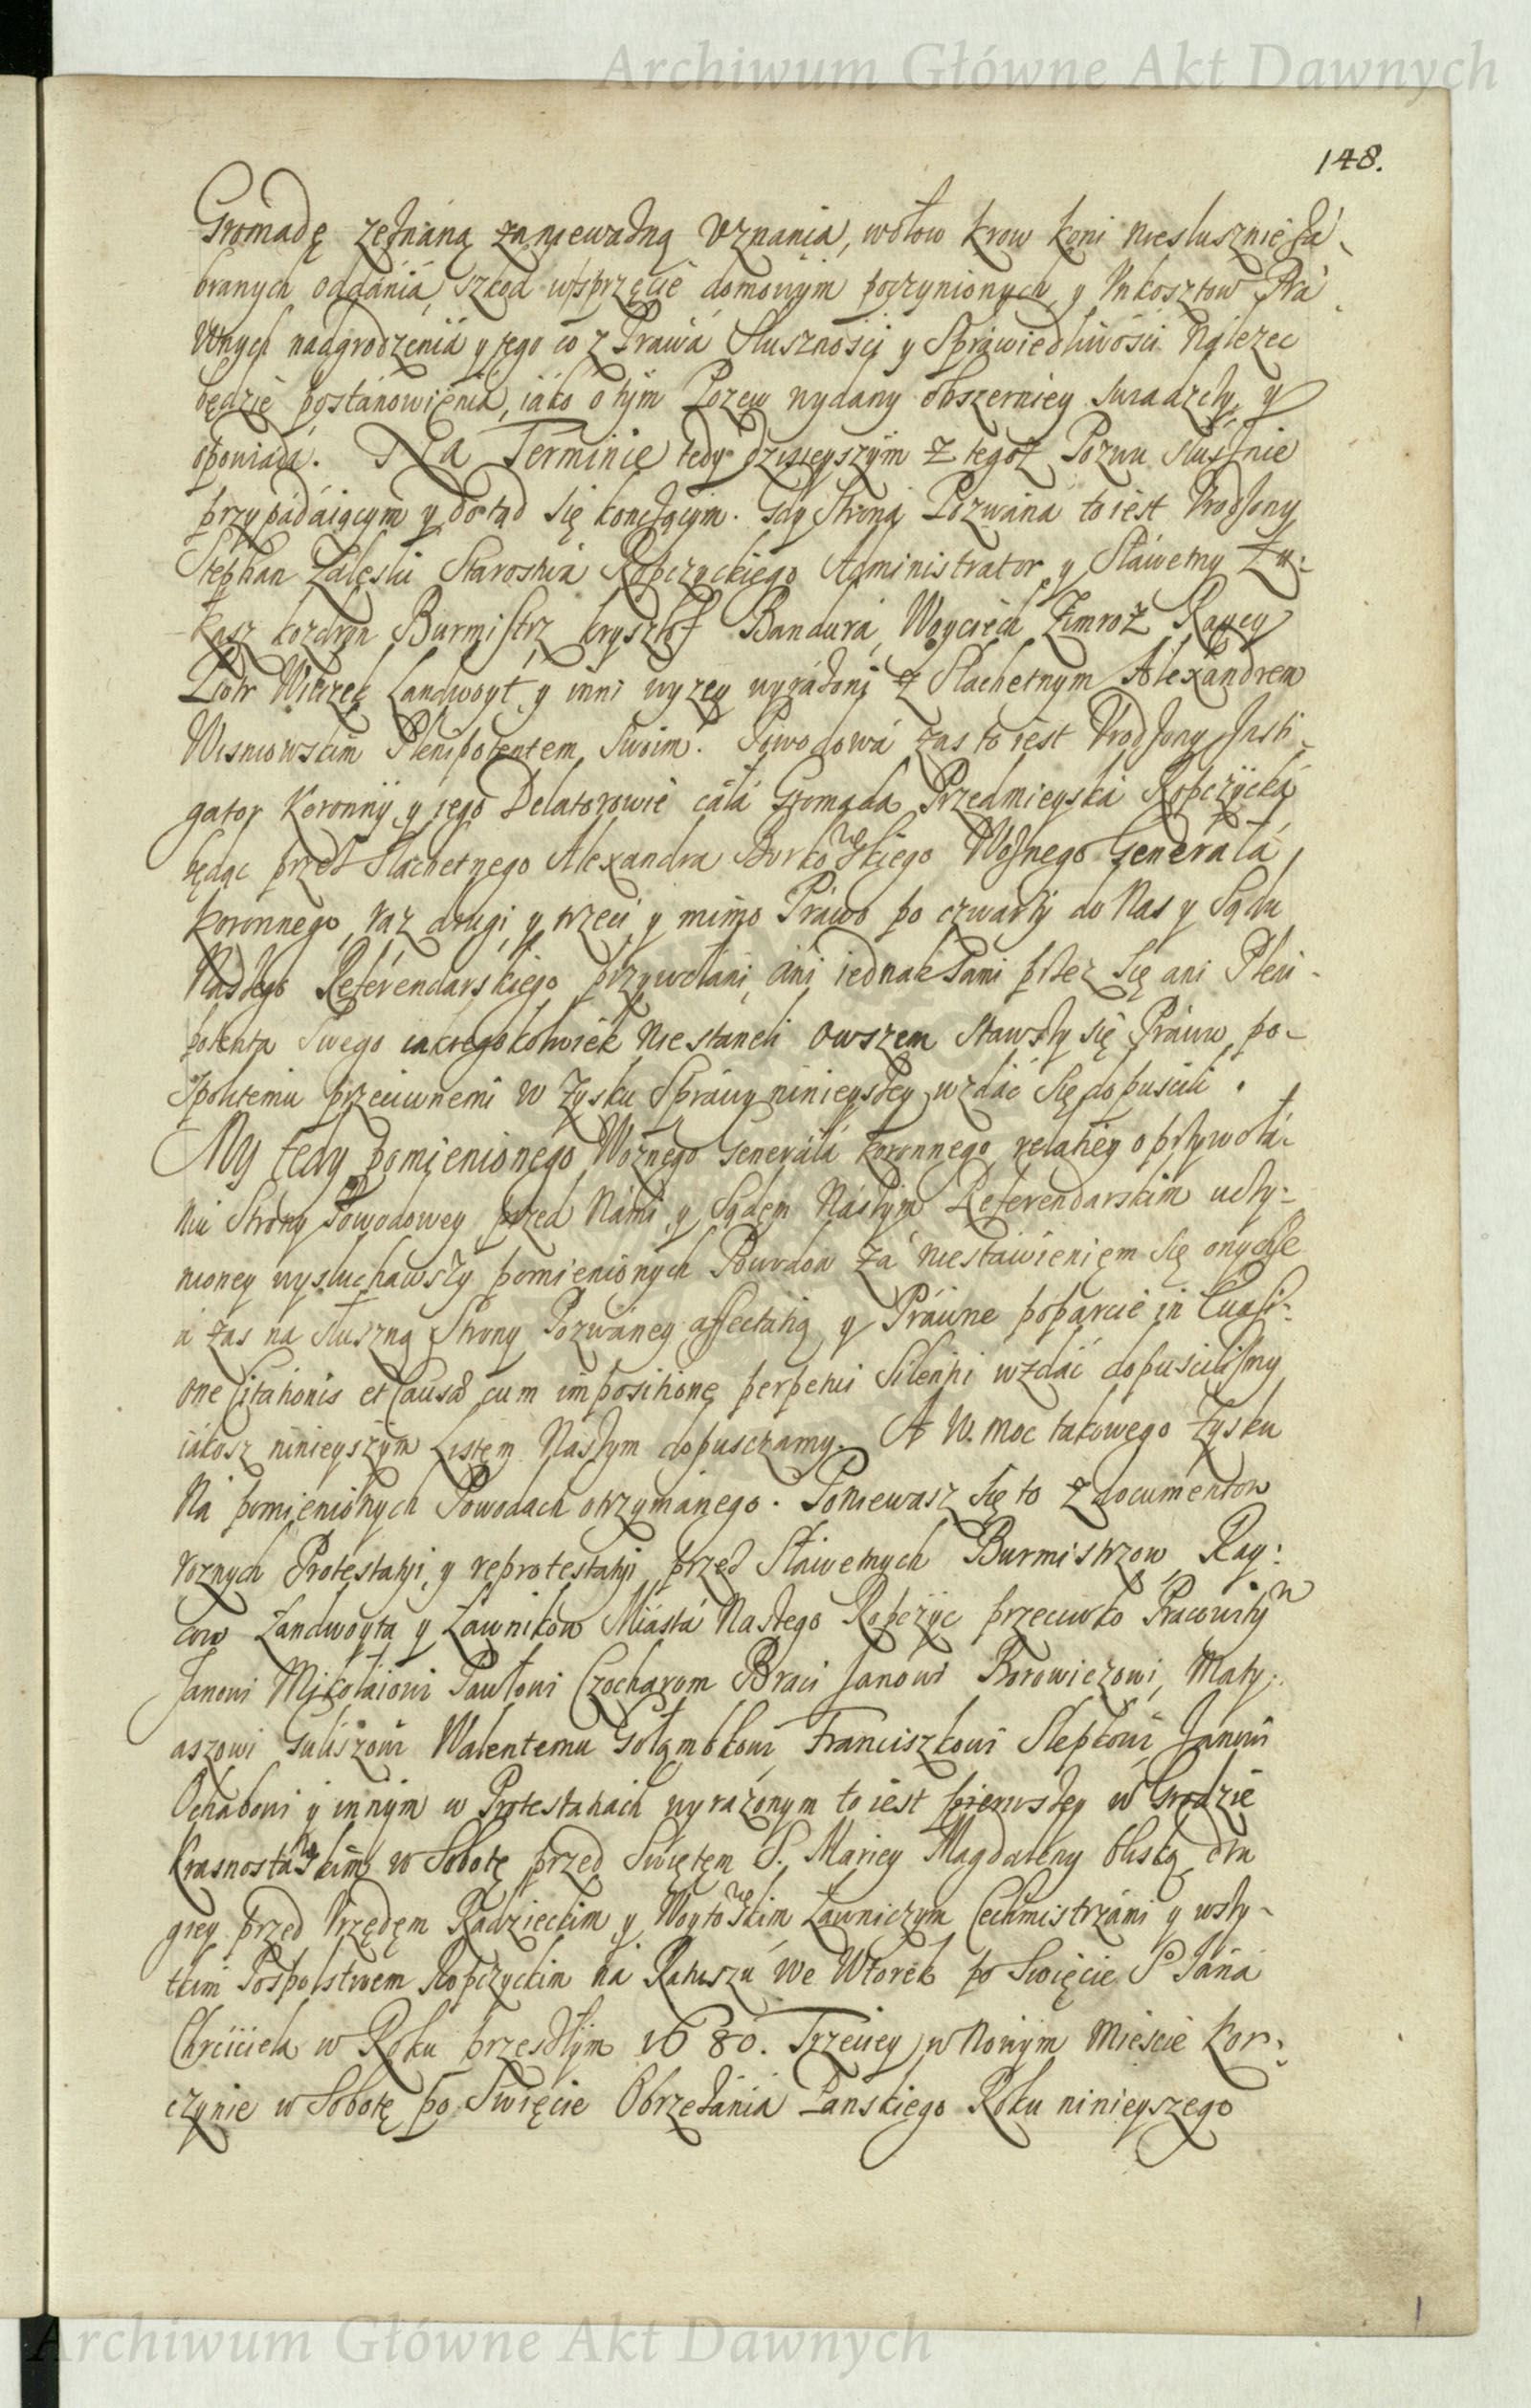 Archiwum Główne Akt Dawnych
148.
Gromadę zeżnaną za nieważną Uznania, wołow krow koni niesłusznie za-
branych oddánia, szkod w sprzęcie domowym poczynionych y Unkosztow Prá
wnych nadgrodzenia y tego co z Prawá Słusznosci y Spráwiedliwośći Nalezec
będzie postánowienia, iáko o tym Pozew wydany obszerniey swiadczy, y
opowiadá. Na Terminie tedy dzisieyszym z tegoż Pozwu słusznie
przypádáiącym y dotąd się konczącym. Gdy Stroná Pozwána to iest Vrodzony
Stephan Zaleski Starostwa Ropczyckiego Administrator y Sławetny Łu-
kasz kozdron Burmistrz krysztof Bandura, Woyciech Zimroz Raycy
Piotr Wilczek Landwoyt y inni wyzey wyráżoni z Slachetnym Alexandrem
Wisniowskim Plenipotentem Swoim. Powodowa zas to iest Vrodzony Insti-
gator Koronny y iego Delatorowie cáła Gromada Przedmieyska Ropczycka
będąc przez Slachetnego Alexandra Borkowskiego Woznego Generałá
koronnego, raz drugi, y trzeci y mimo Práwo po czwarty do Nas y Sądu
Naszego Referendarskiego przywołani, áni iednak sami przez się ani Pleni-
potenta Swego iakiegokolwiek nie staneli owszem stawszy się Práwu po-
spolitemu przeciwnemi w Zysku Spráwy ninieyszey wzdáć się dopuscili.
My tedy pomienionego Woznego Generáła koronnego relatiey o przywołá-
niu Strony Powodowey przed Námi y Sądem Nászym Referendarskim uczy-
nioney wysłuchawszy pomienionych Powodow zá niestáwieniem się onychze
á zas na słuszną Strony Pozwáney affectatią y Práwne poparcie in Cassati-
one Citationis et Causæ cum impositione perpetui Silentii wzdáć dopuscilismy
iákosz ninieyszym Listem Naszym dopusczamy. A W. moc takowego Zysku
Ná pomienionych Powodach otrzymánego. Poniewasz się to z documentow
roznych Protestatyi, y reprotestatyi przed Sławetnych Burmistrzow Ray-
cow Landwoyta y Ławnikow Miastá Naszego Ropczyc przeciwko Pracowitym
Janowi Mikołaiowi Pawłowi Czocharom Braci Janowi Borowiczowi, Maty-
aszowi Guliszowi Walentemu Gołąmbkowi Franciszkowi Slepkowi Janowi
Ochabowi y innym w Protestatiach wyrażonym to iest pierwszey w Grodzie
Krasnostawskim w Sobotę przed Swiętem S. Mariey Magdaleny bliską, dru
giey przed Vrzędem Radzieckim y Woytowskim Ławniczym Cechmistrzámi y wszy-
tkim Pospolstwem Ropczyckim ná Ratuszu We Wtorek po Swięcie S Jáná
Chrciciela w Roku przeszłym 1680. Trzeciey w Nowym Mieście Kor-
czynie w Sobotę po Swięcie Obrzezánia Panskiego Roku ninieyszego
Archiwum Główne Akt Dawnych